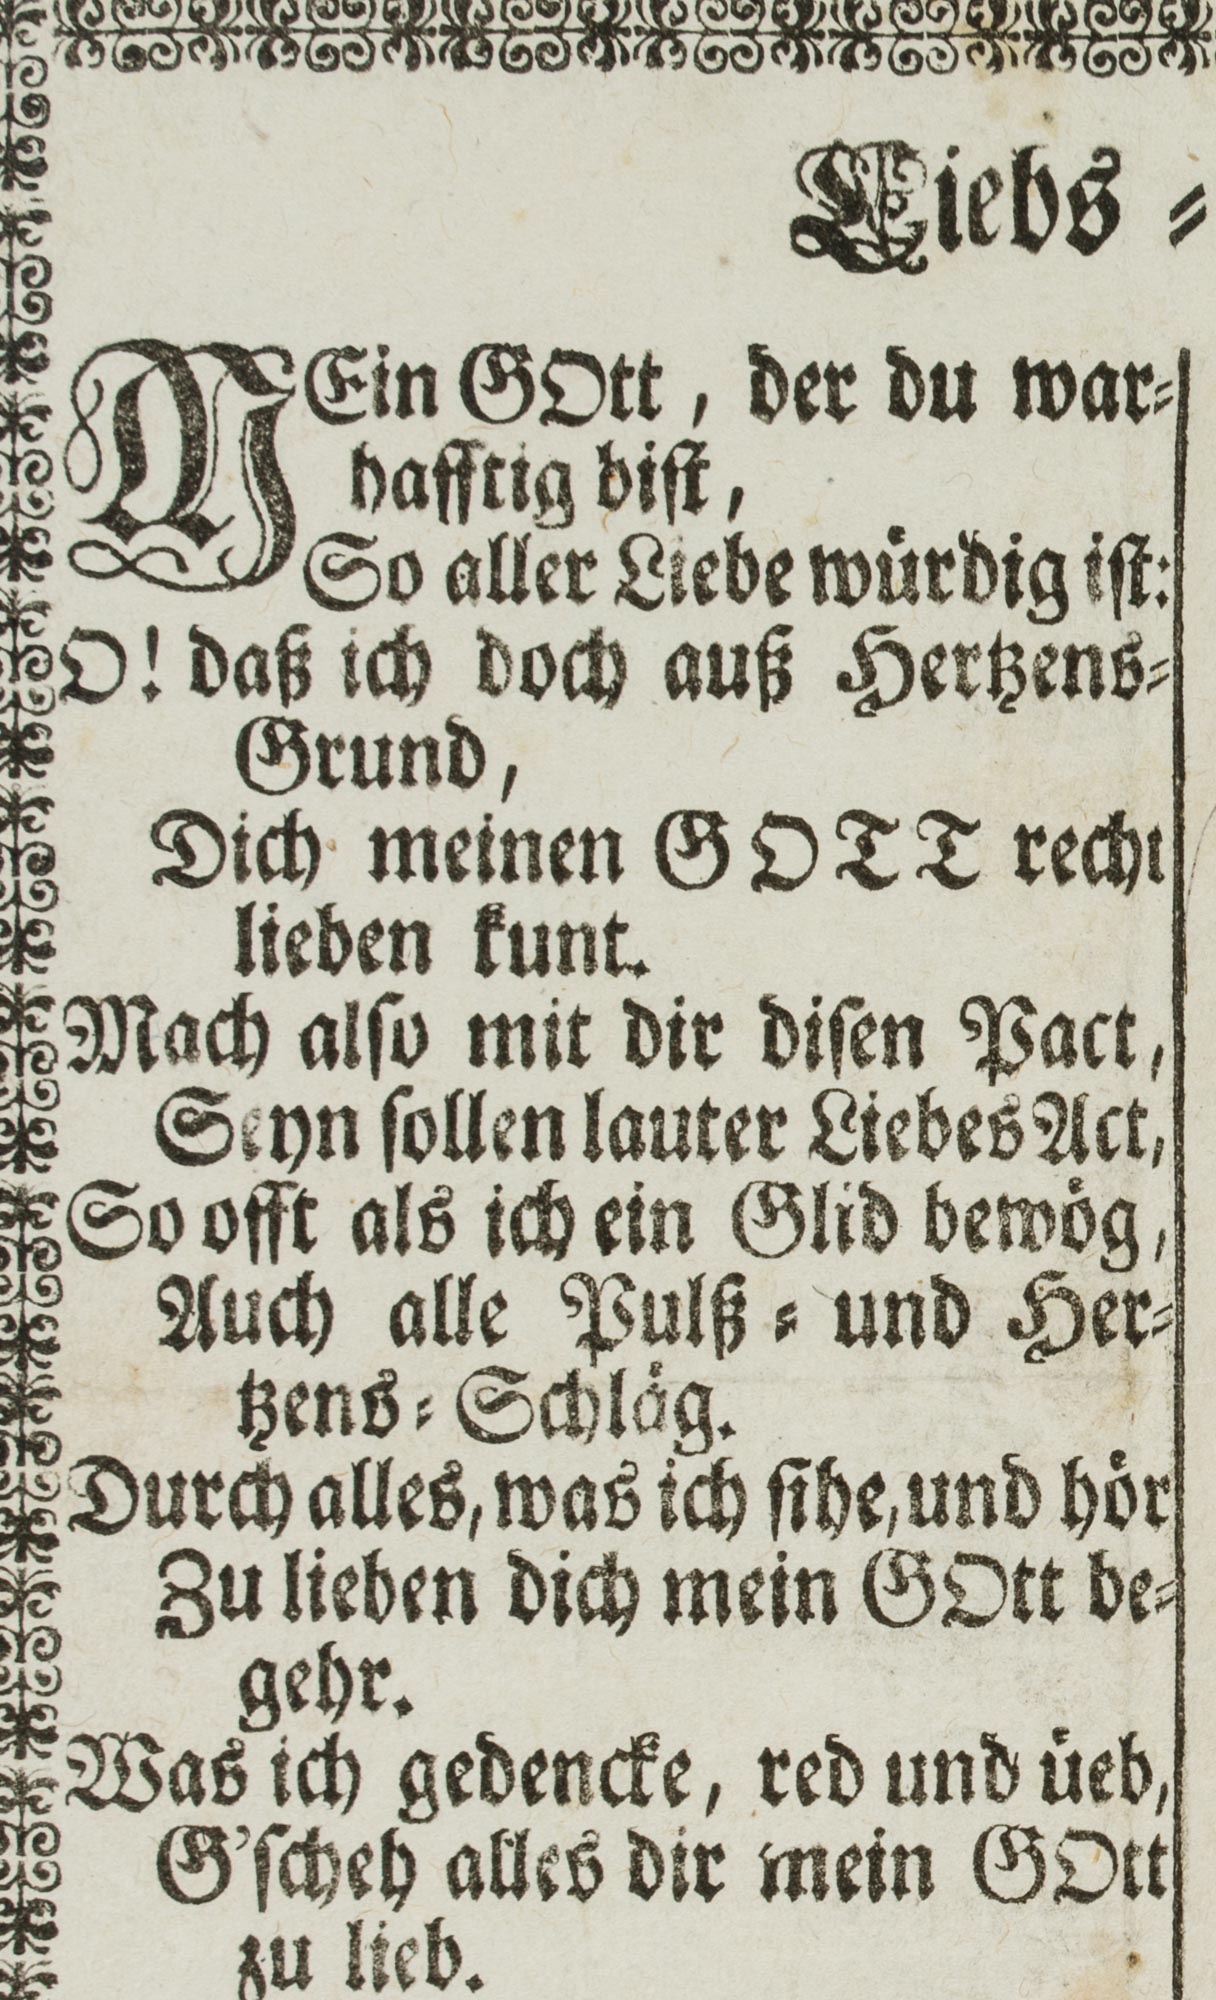 Liebs =
MEin GOtt, der du war=
hafftig bist,
So aller Liebe würdig ist:
O! daß ich doch auß Hertzens=
Grund,
Dich meinen GOTT recht
lieben kunt.
Mach also mit dir disen Pact,
Seyn sollen lauter Liebes Act,
So offt als ich ein Glid bewög,
Auch alle Pulß = und Her=
tzens = Schläg.
Durch alles, was ich sihe, und hör
Zu lieben dich mein GOtt be=
gehr.
Was ich gedencke, red und üeb,
G'scheh alles dir mein GOtt
zu lieb.